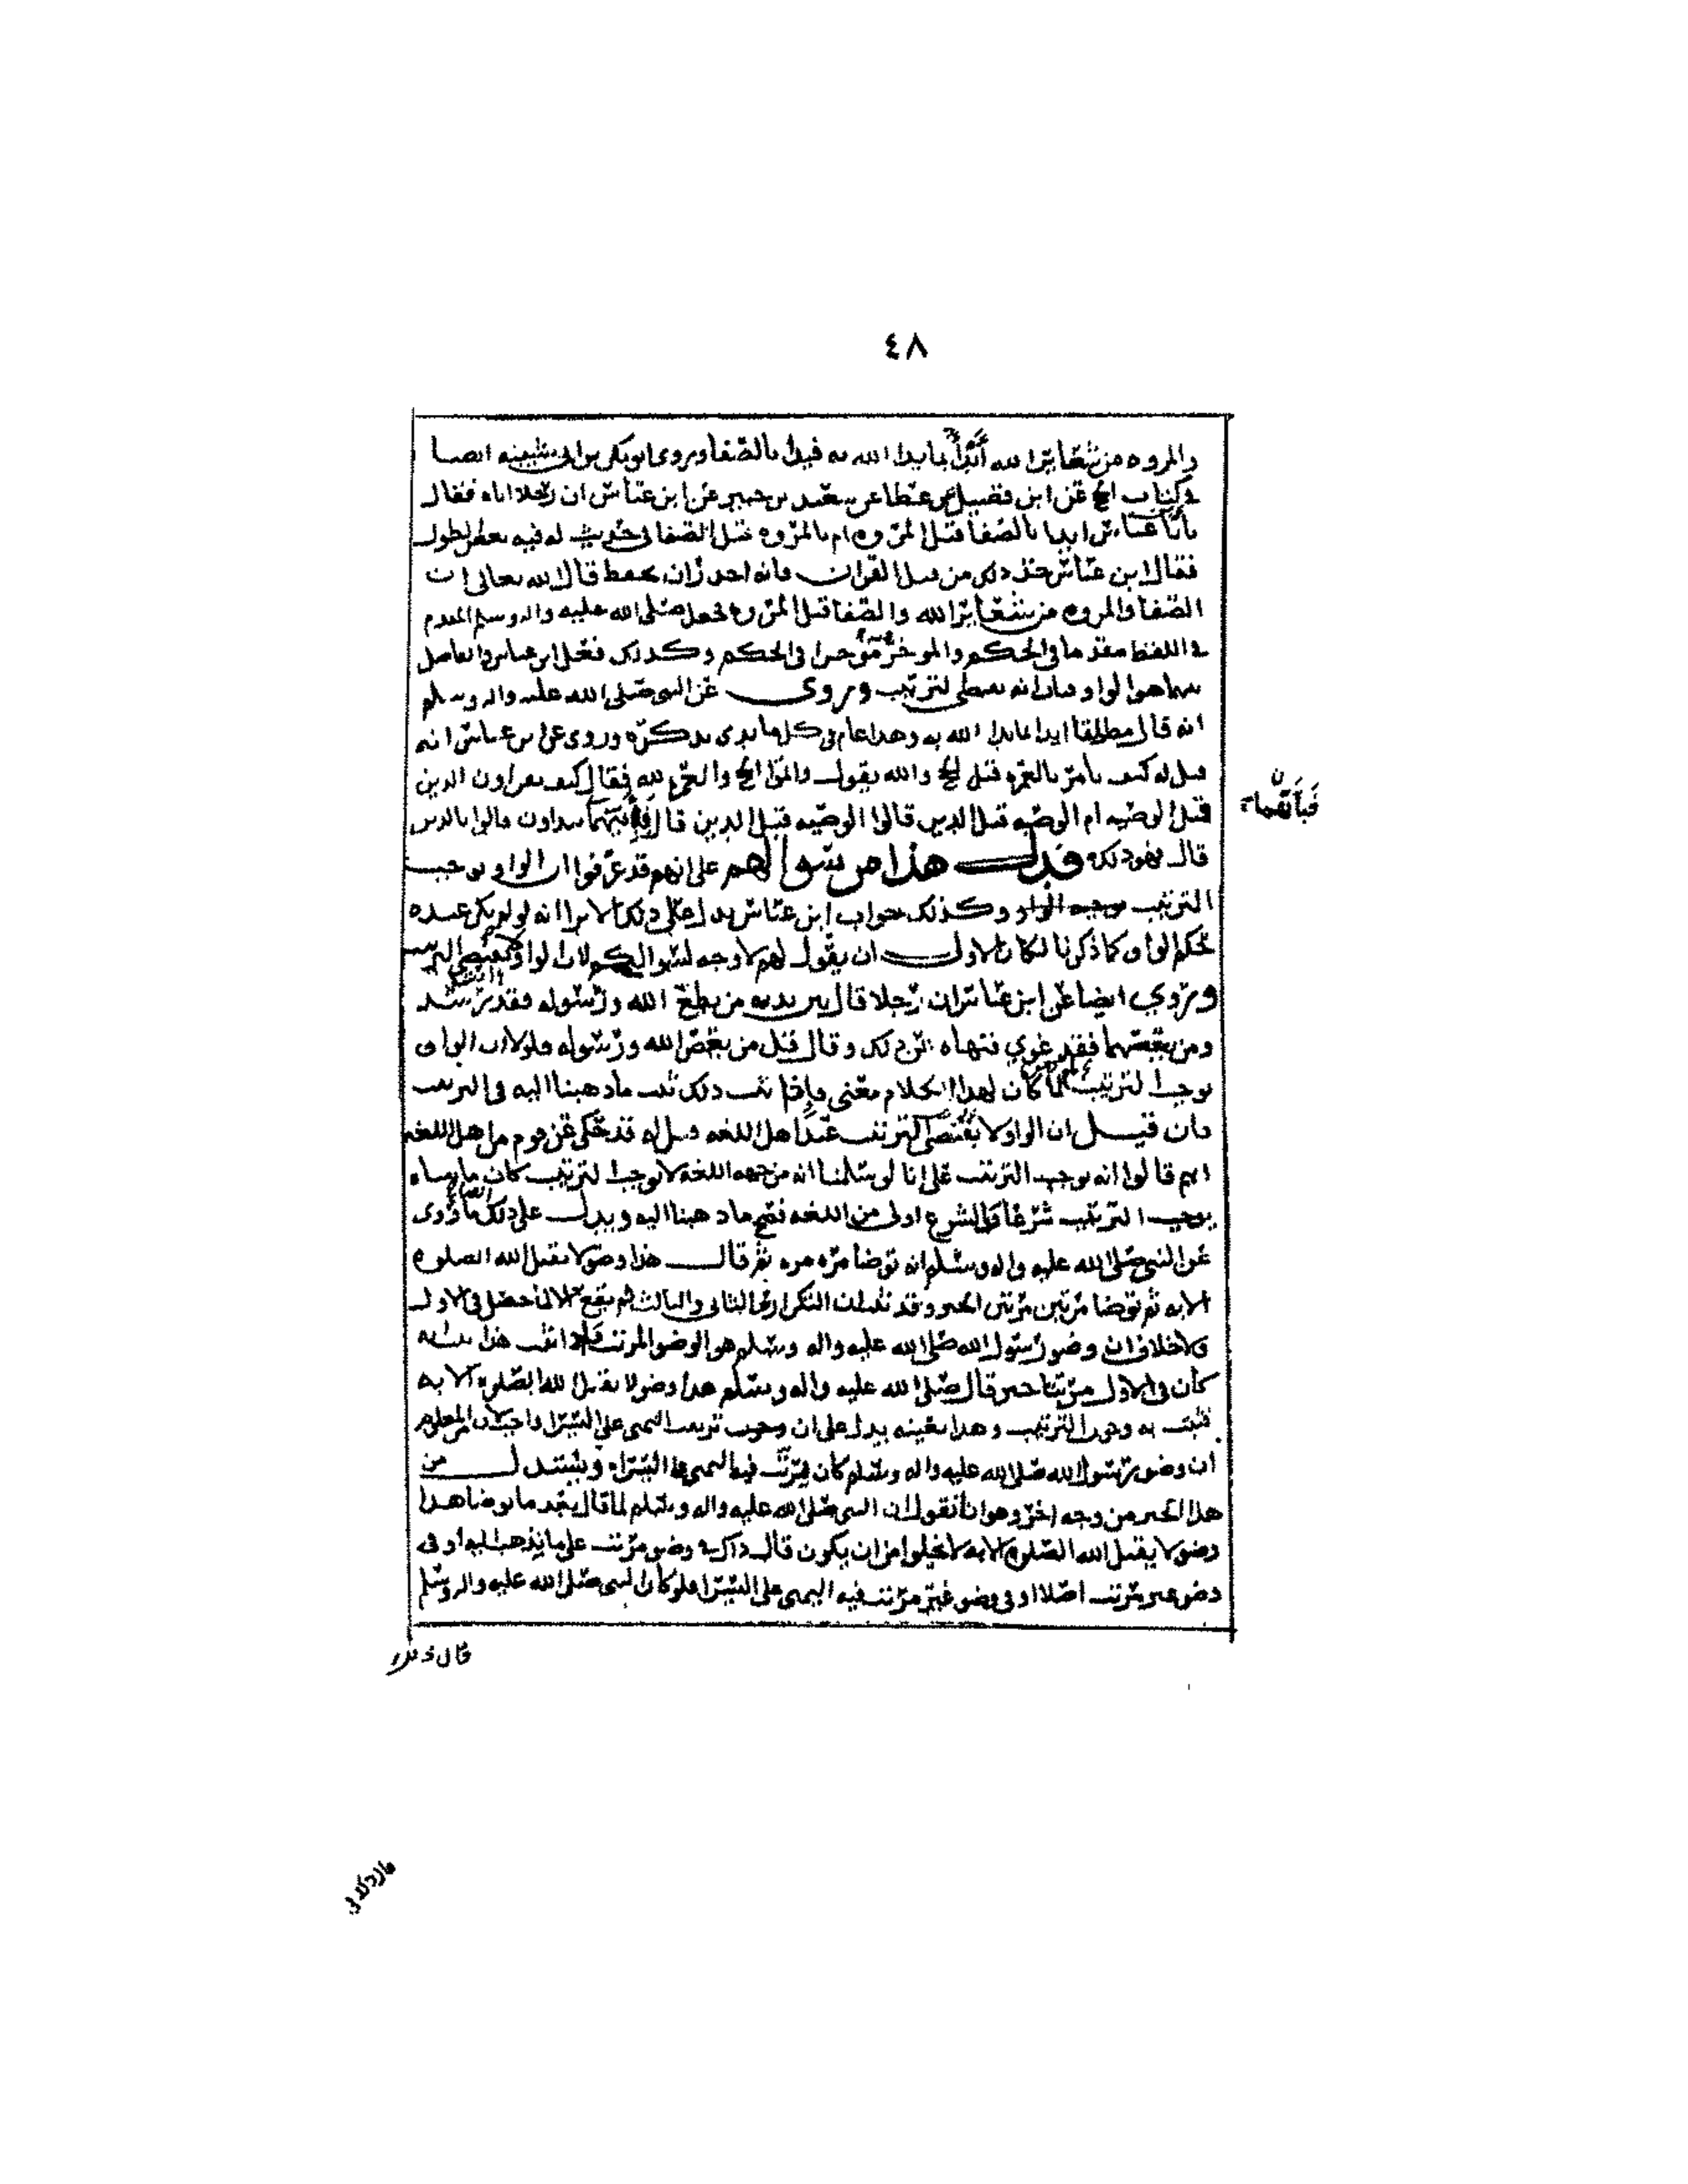 ٤٨
والمروه من شعاير الله أبدأ بما بدا الله به فبدا بالصفا وروى ابو بكر بن ابي شيبه ايضا
في كتاب الحج عن ابن فضيل عن عطا عن سعيد بن جبير عن ابن عباس ان رجلا اتاه فقال
يا با عباس ابدا بالصفا قبل المروه ام بالمروه قبل الصفا في حديث له فيه بعض الطول
فقال ابن عباس خذ ذلك من قبل القران فانه اجدر ان يحفظ قال الله تعالى ان
الصفا والمروه من شعاير الله والصفا قبل المروه فجعل صلى الله عليه واله وسلم المقدم
في اللفظ مقدما في الحكم والموخر موخرا في الحكم وكذلك فعل ابن عباس والفاصل
بينهما هو الواو فبان انه يعطي الترتيب وروى عن النبي صلى الله عليه واله وسلم
انه قال مطلقا ابدا بما بدا الله به وهذا عام في كل ما بدي بذكره وروى عن ابن عباس انه
قيل له كيف تامر بالعمره قبل الحج والله يقول واتموا الحج والعمره لله فقال كيف تقراون الدين
قبل الوصيه ام الوصيه قبل الدين قالوا الوصيه قبل الدين قال فبايهما تبداون قالوا بالدين
فبأيهما
قال فهو ذلك فدل هذا من سوالهم على انهم قد عرفوا ان الواو يوجب
الترتيب وكذلك جواب ابن عباس يدل على ذلك الا ترا انه لو لم يكن عنده
حكم الواو كما ذكرنا لكان الاولى ان يقول لهم لا وجه لسوالكم لان الواو لا يقتضي الترتيب
وروي ايضا عن ابن عباس ان رجلا قال بين يديه من يطع الله ورسوله فقد رشد
ومن يعصهما فقد غوي فنهاه عن ذلك وقال قل من يعص الله ورسوله فلولا ان الواو
يوجب الترتيب لما كان لهذا الكلام معنى وإذا ثبت ذلك ثبت ما ذهبنا اليه في الترتيب
فان قيل ان الواو لا يقتضي الترتيب عند اهل اللغه قيل له قد حكي عن قوم من اهل اللغه
انهم قالوا انه يوجب الترتيب على انا لو سلمنا انه من جهه اللغه لا يوجب الترتيب كان ما بيناه
يوجب الترتيب شرعا والشرع اولى من اللغه فصح ما ذهبنا اليه ويدل على ذلك ما روى
عن النبي صلى الله عليه واله وسلم انه توضا مره مره ثم قال هذا وضو لا يقبل الله الصلوه
الا به ثم توضا مرتين مرتين الخبر وقد ثبت ان التكرار في الثاني والثالث لم يقع الا لما حصل في الاول
ولا خلاف ان وضو رسول الله صلى الله عليه واله وسلم هو الوضو المرتب فاذا ثبت هذا ثبت انه
كان في الاول مرتبا حين قال صلى الله عليه واله وسلم هذا وضو لا يقبل الله الصلوه الا به
فثبت به وجوب الترتيب وهذا بعينه يدل على ان وجوب ترتيب اليمنى على اليسرا واجب لان المعلوم
ان وضو رسول الله صلى الله عليه واله وسلم كان مرتب فيه اليمنى على اليسرا ويستدل من
هذا الخبر من وجه اخر وهو انا نقول ان النبي صلى الله عليه واله وسلم لما قال بعد ما توضا هذا
وضو لا يقبل الله الصلوه الا به لا يخلوا من ان يكون قال ذلك في وضو مرتب على ما نذهب اليه او في
وضو غير مرتب اصلا او في وضو غير مرتب فيه اليمنى على اليسرا فلو كان النبي صلى الله عليه واله وسلم